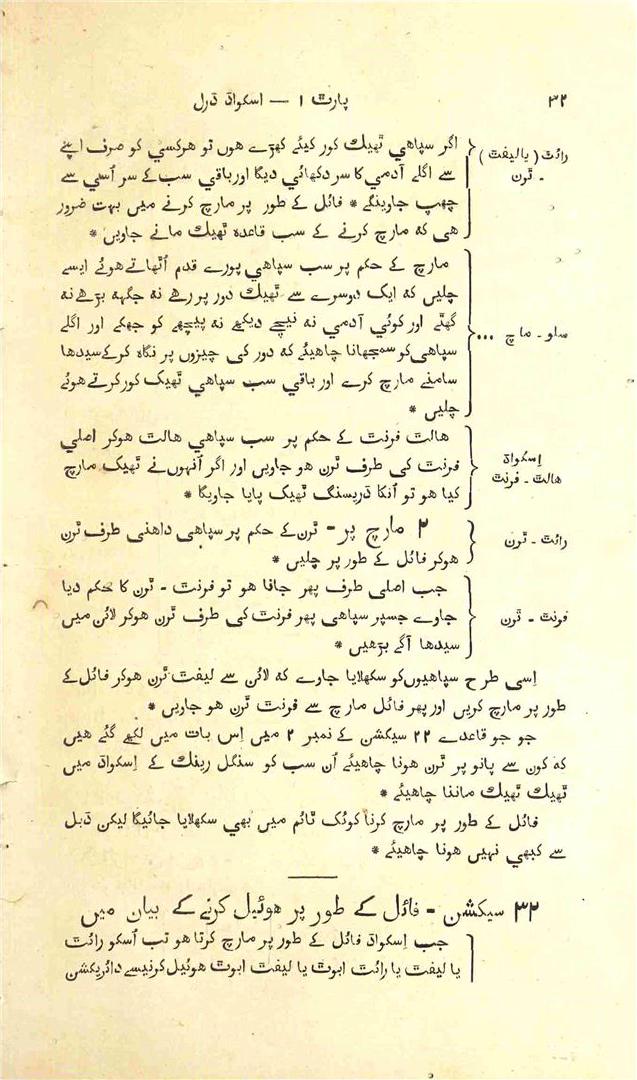 ۳۲
پارت ۱ — اسکواڈ ڈرل
رائٹ (یا لیفٹ)
- ٹرن
اگر سپاهي ٹهیك کور کیئے کهڑے هوں تو هرکسي کو صرف اپنے
سے اگلے آدمي کا سر دکهائي دیگا اور باقي سب کے سر اُسي سے
چهپ جاوینگے * فائل کے طور پر مارچ کرنے میں بہت ضرور
هی که مارچ کرنے کے سب قاعده ٹهیك مانے جاویں *
سلو - ماچ ...
مارچ کے حکم پر سب سپاهي پورے قدم اُٹهاتے هوئے ایسے
چلیں که ایک دوسرے سے ٹهیك دور پر رهے نه جگهه بڑهے نه
گهٹے اور کوئي آدمي نه نیچے دیکهے نه پیچهے کو جهکے اور اگلے
سپاهي کو سمجهانا چاهیئے که دور کی چیزوں پر نگاه کرکے سیدها
سامنے مارچ کرے اور باقي سب سپاهي ٹهیک کور کرتے هوئے
چلیں *
اِسکواڈ
هالٹ - فرنٹ
هالٹ فرنٹ کے حکم پر سب سپاهي هالٹ هوکر اصلي
فرنٹ کی طرف ٹرن هو جاویں اور اگر اُنہوں نے ٹهیک مارچ
کیا هو تو اُنکا ڈریسنگ ٹهیک پایا جاویگا *
رائٹ - ٹرن
۲ مارچ پر - ٹرن کے حکم پر سپاهی داهنی طرف ٹرن
هوکر فائل کے طور پر چلیں *
فرنٹ - ٹرن
جب اصلی طرف پهر جانا هو تو فرنٹ - ٹرن کا حکم دیا
جاوے جسپر سپاهي پهر فرنٹ کی طرف ٹرن هوکر لائن میں
سیدها آگے بڑهیں *
اِسی طرح سپاهیوں کو سکهلایا جاوے که لائن سے لیفٹ ٹرن هوکر فائل کے
طور پر مارچ کریں اور پهر فائل مارچ سے فرنٹ ٹرن هو جاویں *
جو جو قاعدے ۲۲ سیکشن کے نمبر ۲ میں اِس بات میں لکهے گئے هیں
که کون سے پانو پر ٹرن هونا چاهیئے اُن سب کو سنگل رینک کے اِسکواڈ میں
ٹهیك ٹهیك ماننا چاهیئے *
فائل کے طور پر مارچ کرنا کوئک ٹائم میں بهي سکهلایا جائیگا لیکن ڈبل
سے کبهي نہیں هونا چاهیئے *
۳۲ سیکشن - فائل کے طور پر هوئیل کرنے کے بیان میں
جب اِسکواڈ فائل کے طور پر مارچ کرتا هو تب اُسکو رائٹ
یا لیفٹ یا رائٹ ابوٹ یا لیفٹ ابوٹ هوئیل کرنیسے دائریکشن